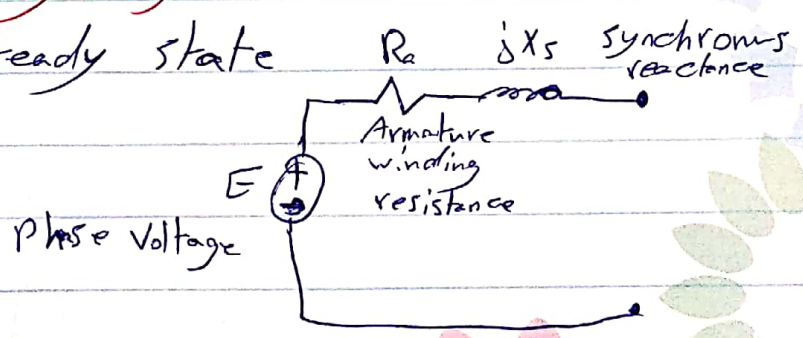 ready state
Ra jXs synchronus
reactance
Armature
winding
resistance
E
+
-
Phase Voltage